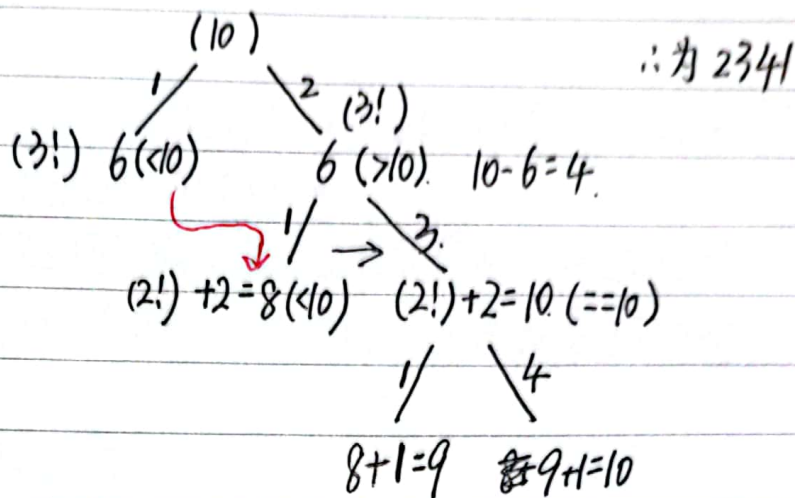 (10)
∴为 2341
1 2 (3!)
(3!) 6(<10) 6 (>10). 10-6=4.
1 → 3.
(2!) +2=8(<10) (2!)+2=10. (==10)
1 4
8+1=9 9+1=10